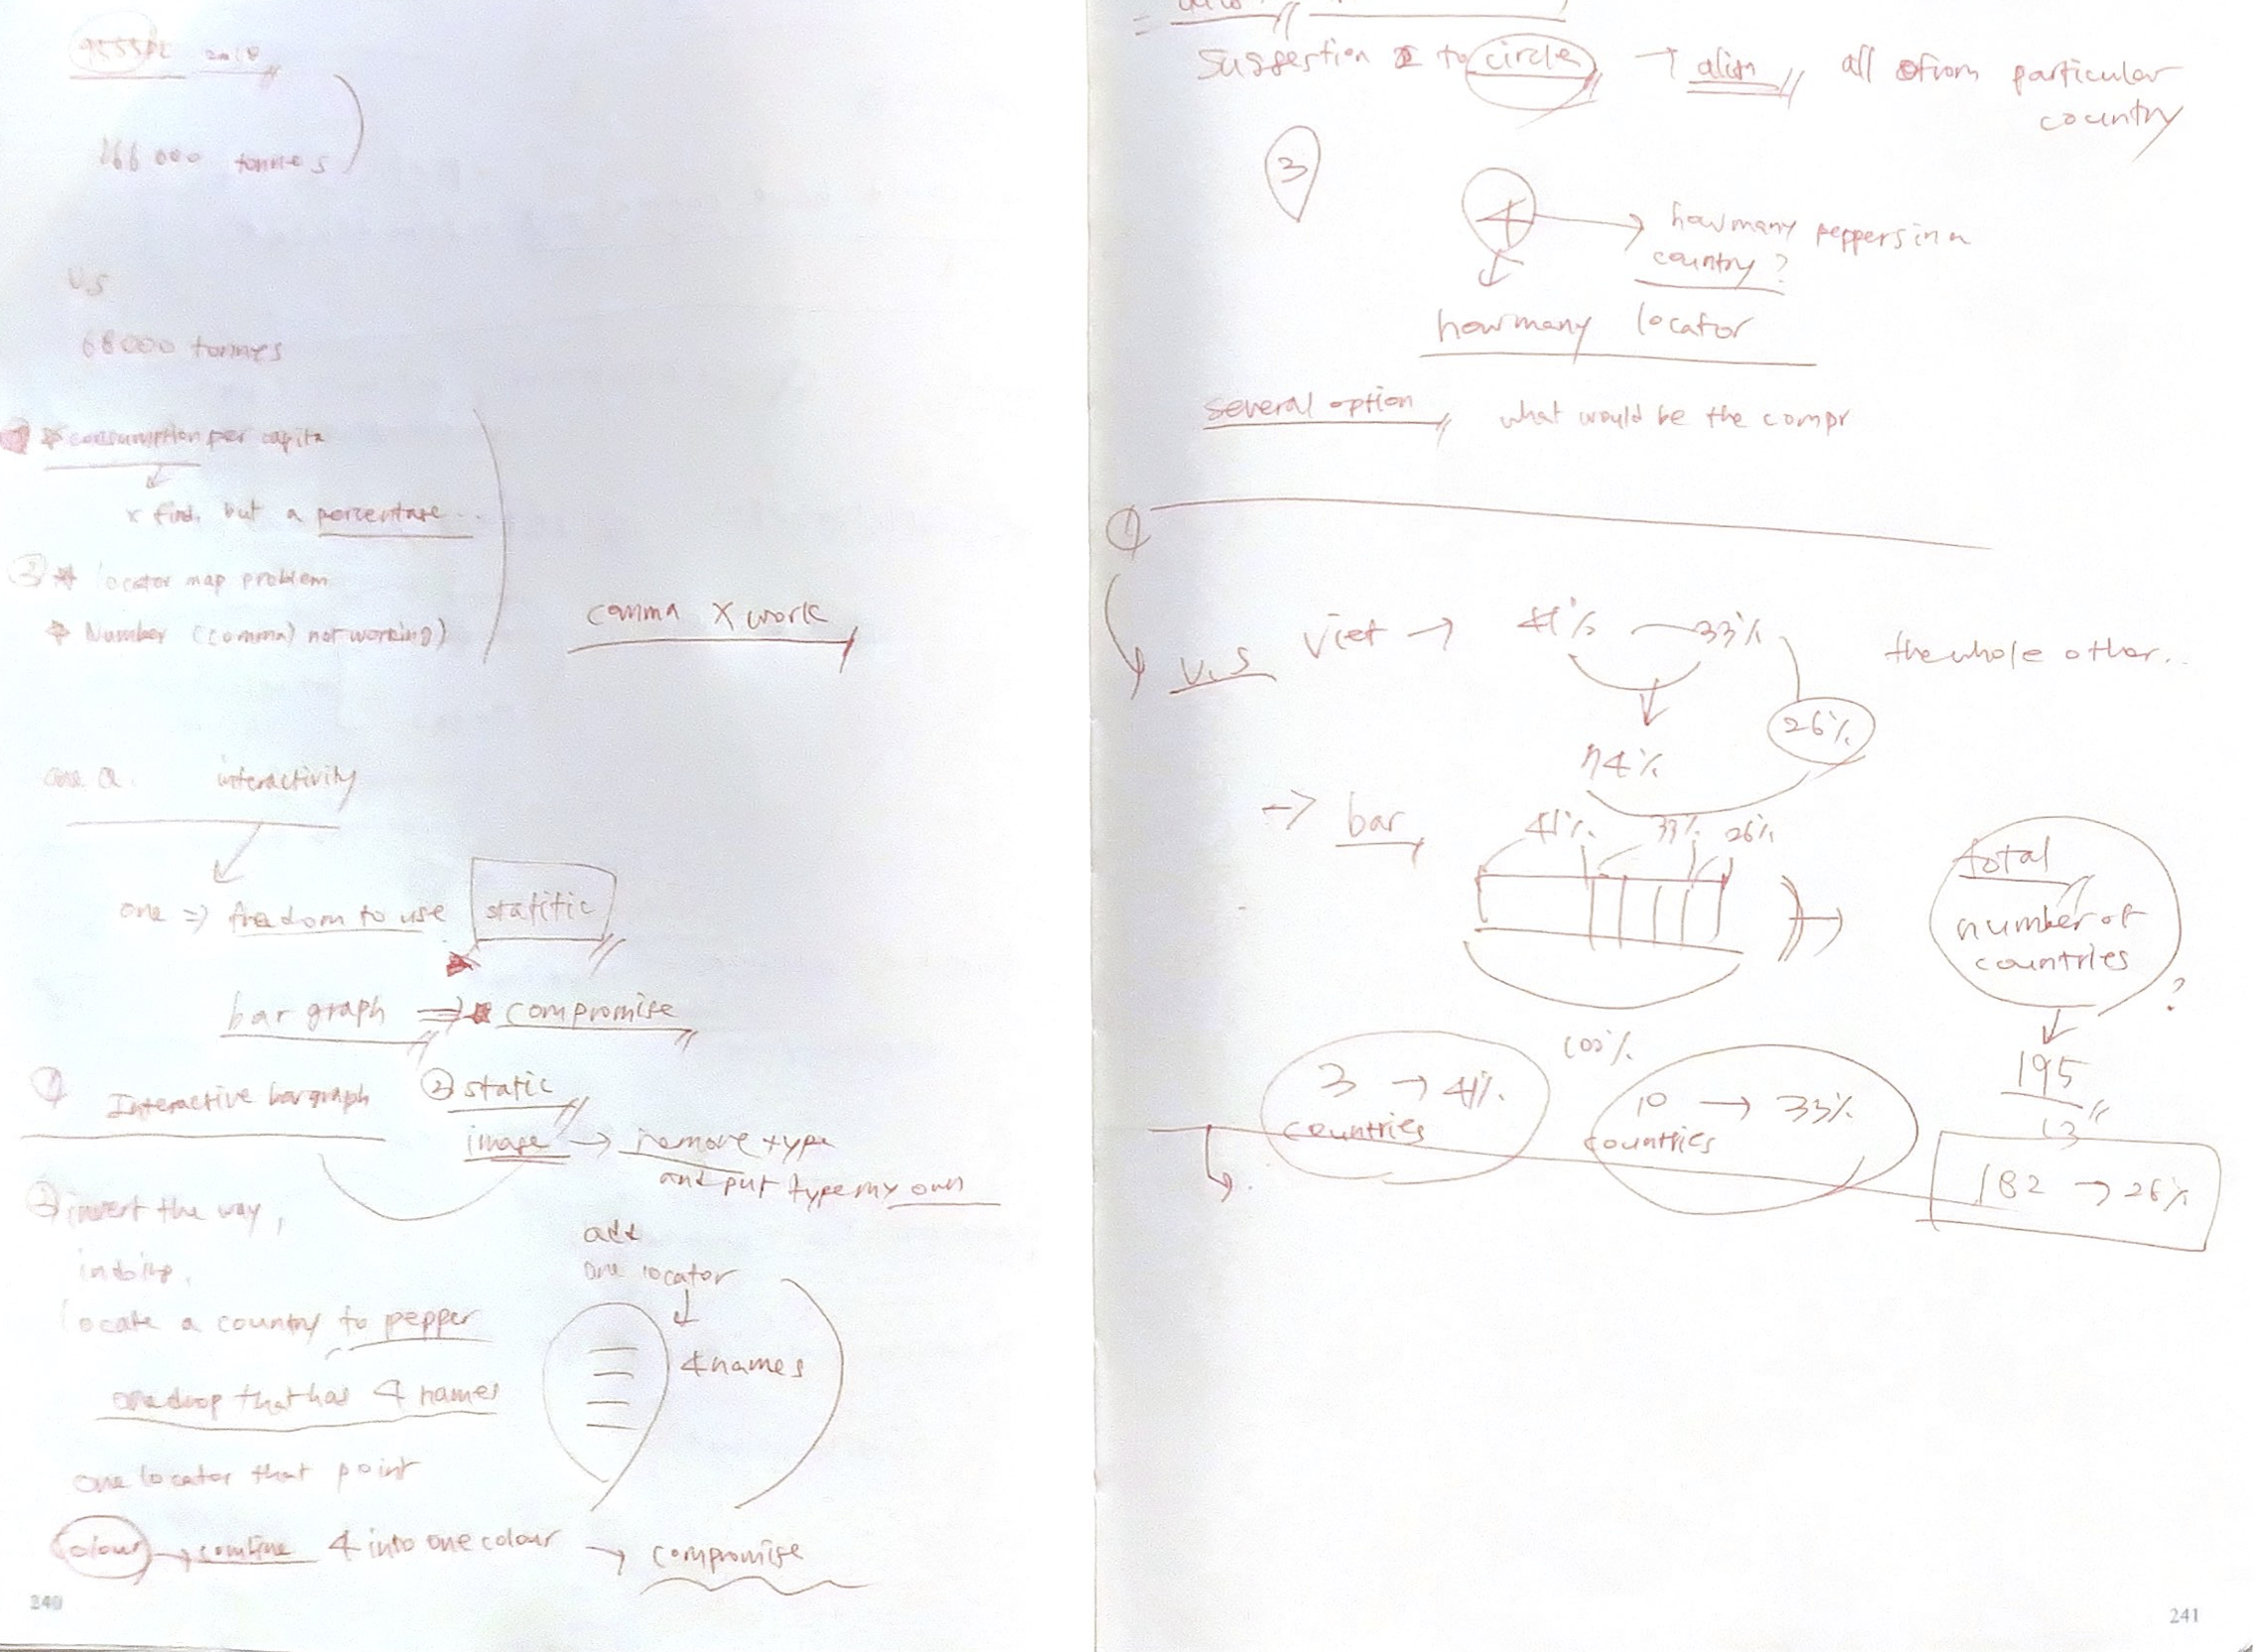 2018
166 000 tonnes
V.S
68000 tonnes
consumption per capita
x find, but a percentage...
locator map problem
Number (comma) not working)
comma x work
one a. interactivity
one => freedom to use statitic
bar graph => compromise
① Interactive bargraph ② static
image → remove type
and put type my own
② invert the way,
locate a country to pepper
one drop that has 4 names
add
one locator
4 names
one locator that point
colour → combine 4 into one colour → compromise
240
Suggestion to circle → align all from particular
country
3
4 → how many peppers in a
country?
how many locator
several option what would be the compr
①
V.S Viet → 41% 33% the whole other..
26%
74%
→ bar 41% 33% 26%
total
number of
countries
?
100%
195
13
3 → 41%
countries
10 → 33%
countries
182 → 26%
241